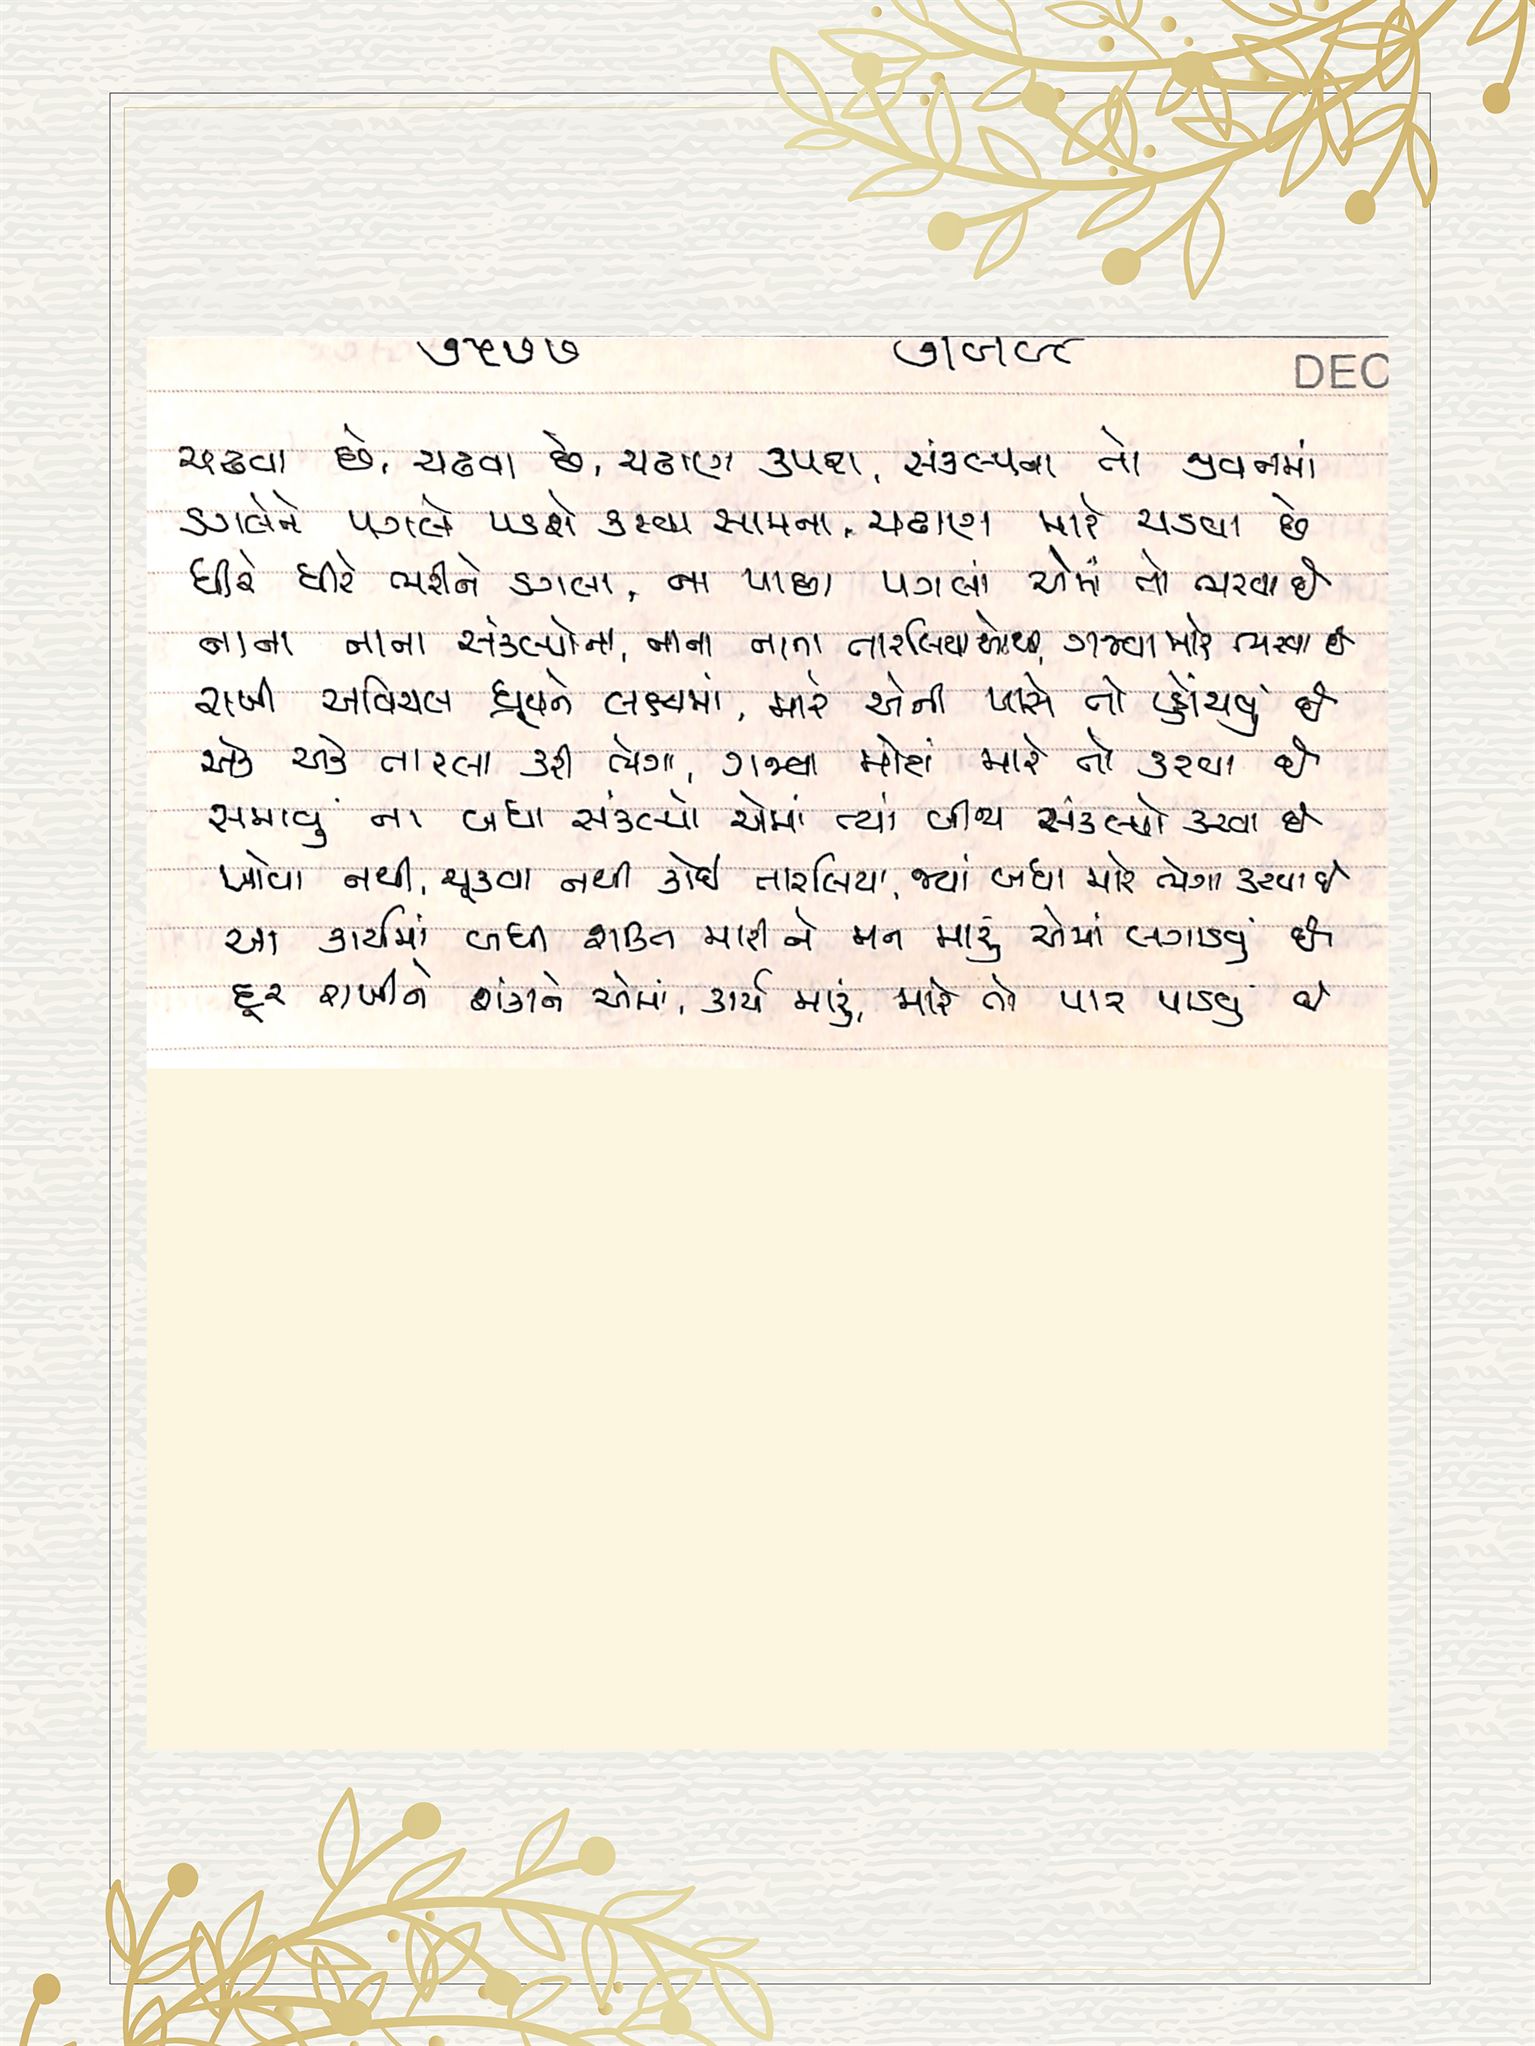 ૭૫૭૭ ગઝલ
DEC
ચઢવા છે, ચઢવા છે, ચઢાણ ઉપરા, સંકલ્પના તો જીવનમાં
ડગલેને પગલે પડશે કરવા સામના, ચઢાણ મારે ચડવા છે
ધીરે ધીરે ભરીને ડગલા, ના પાછા પગલાં એમાં તો ભરવા છે
નાના નાના સંકલ્પોના, નાના નાના તારલિયાઓથી, ગજવા મારે ભરવા છે
રાખી અવિચલ ધ્રૂવને લક્ષ્યમાં, મારે એની પાસે તો પ્હોંચવું છે
એક એક તારલા કરી ભેગા, ગજવા મોટાં મારે તો કરવા છે
સમાવું ના બધા સંકલ્પો એમાં ત્યાં બીજા સંકલ્પો કરવા છે
ખોવા નથી, ચૂકવા નથી કોઈ તારલિયા, જ્યાં બધા મારે ભેગા કરવા છે
આ કાર્યમાં બધી શક્તિ મારી ને મન મારું એમાં લગાડવું છે
દૂર રાખીને શંકાને એમાં, કાર્ય મારું, મારે તો પાર પાડવું છે